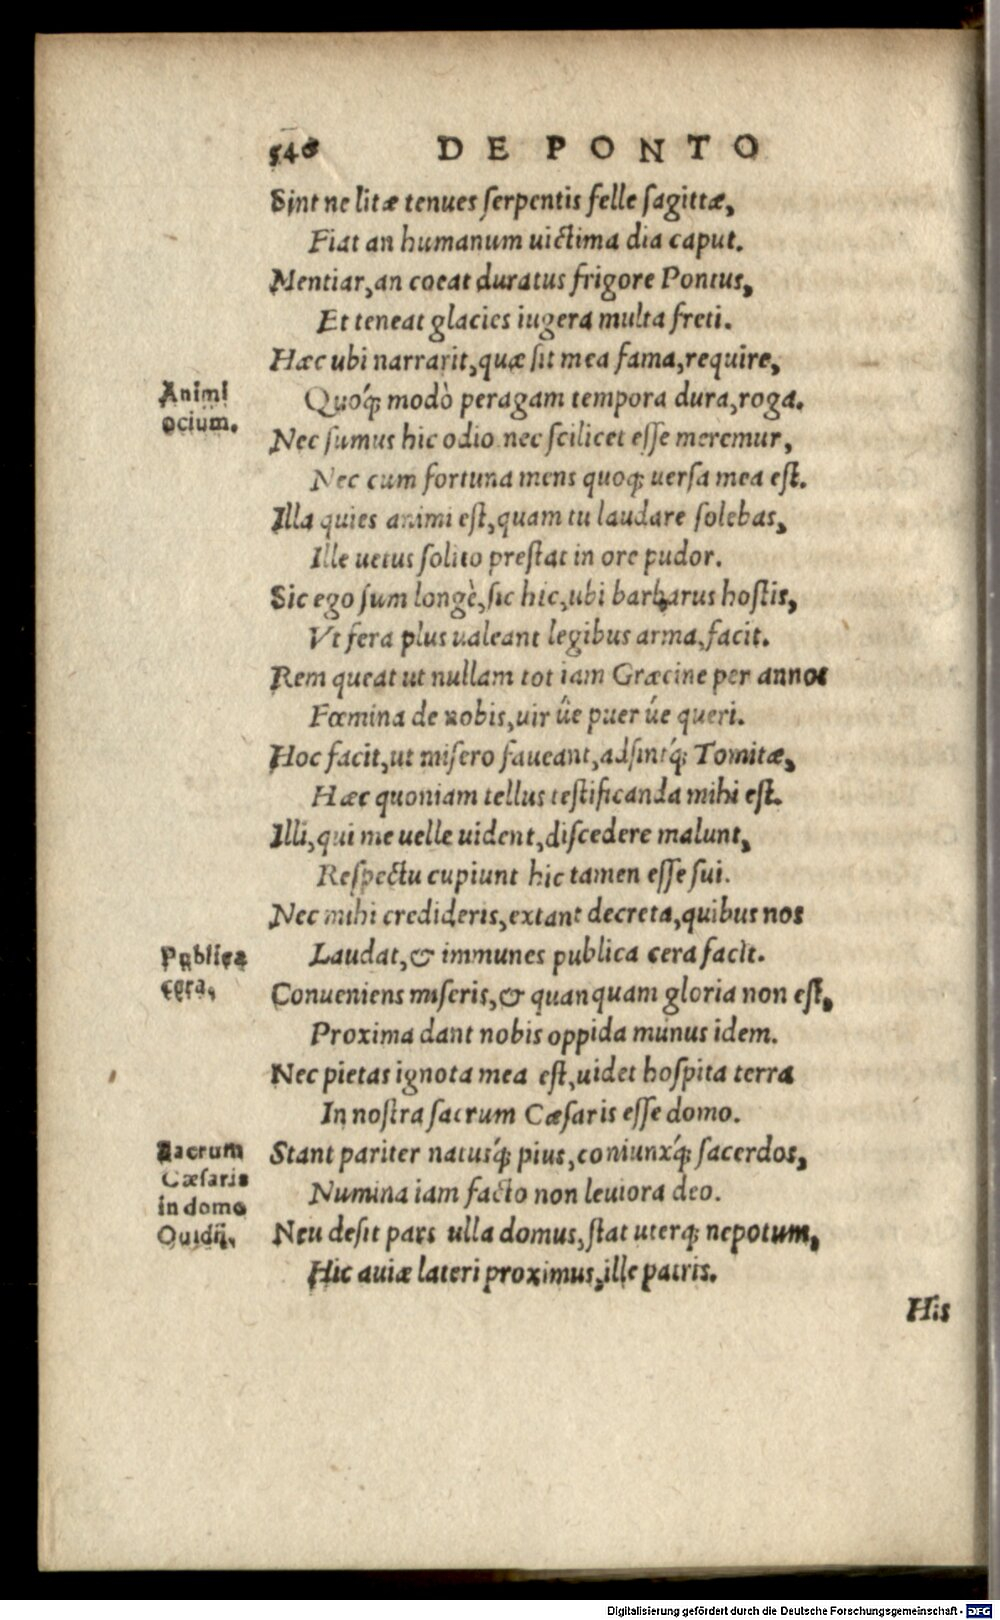 540 DE PONTO
Sint ne litæ tenues ſerpentis felle ſagittæ,
Fiat an humanum uictima dia caput.
Mentiar, an coeat duratus frigore Pontus,
Et teneat glacies iugera multa freti.
Hæc ubi narrarit, quæ ſit mea fama, require,
Animi
ocium.
Quoq́; modò peragam tempora dura, roga.
Nec ſumus hic odio nec ſcilicet eſſe meremur,
Nec cum fortuna mens quoq; uerſa mea eſt.
Illa quies animi eſt, quam tu laudare ſolebas,
Ille uetus ſolito preſtat in ore pudor.
Sic ego ſum longè, ſic hic, ubi barbarus hoſtis,
Vt fera plus ualeant legibus arma, facit.
Rem queat ut nullam tot iam Græcine per annos
Fœmina de nobis, uir úe puer úe queri.
Hoc facit, ut miſero faueant, adſintq́; Tomitæ,
Hæc quoniam tellus teſtificanda mihi eſt.
Illi, qui me uelle uident, diſcedere malunt,
Reſpectu cupiunt hic tamen eſſe ſui.
Nec mihi credideris, extant decreta, quibus nos
Publica
cera.
Laudat, & immunes publica cera facit.
Conueniens miſeris, & quanquam gloria non eſt,
Proxima dant nobis oppida munus idem.
Nec pietas ignota mea eſt, uidet hoſpita terra
In noſtra ſacrum Cæſaris eſſe domo.
Sacrum
Cæſaris
in domo
Ouidij.
Stant pariter natusq́; pius, coniunxq́; ſacerdos,
Numina iam facto non leuiora deo.
Neu deſit pars ulla domus, ſtat uterq; nepotum,
Hic auiæ lateri proximus, ille patris.
His
Digitalisierung gefördert durch die Deutsche Forschungsgemeinschaft - DFG